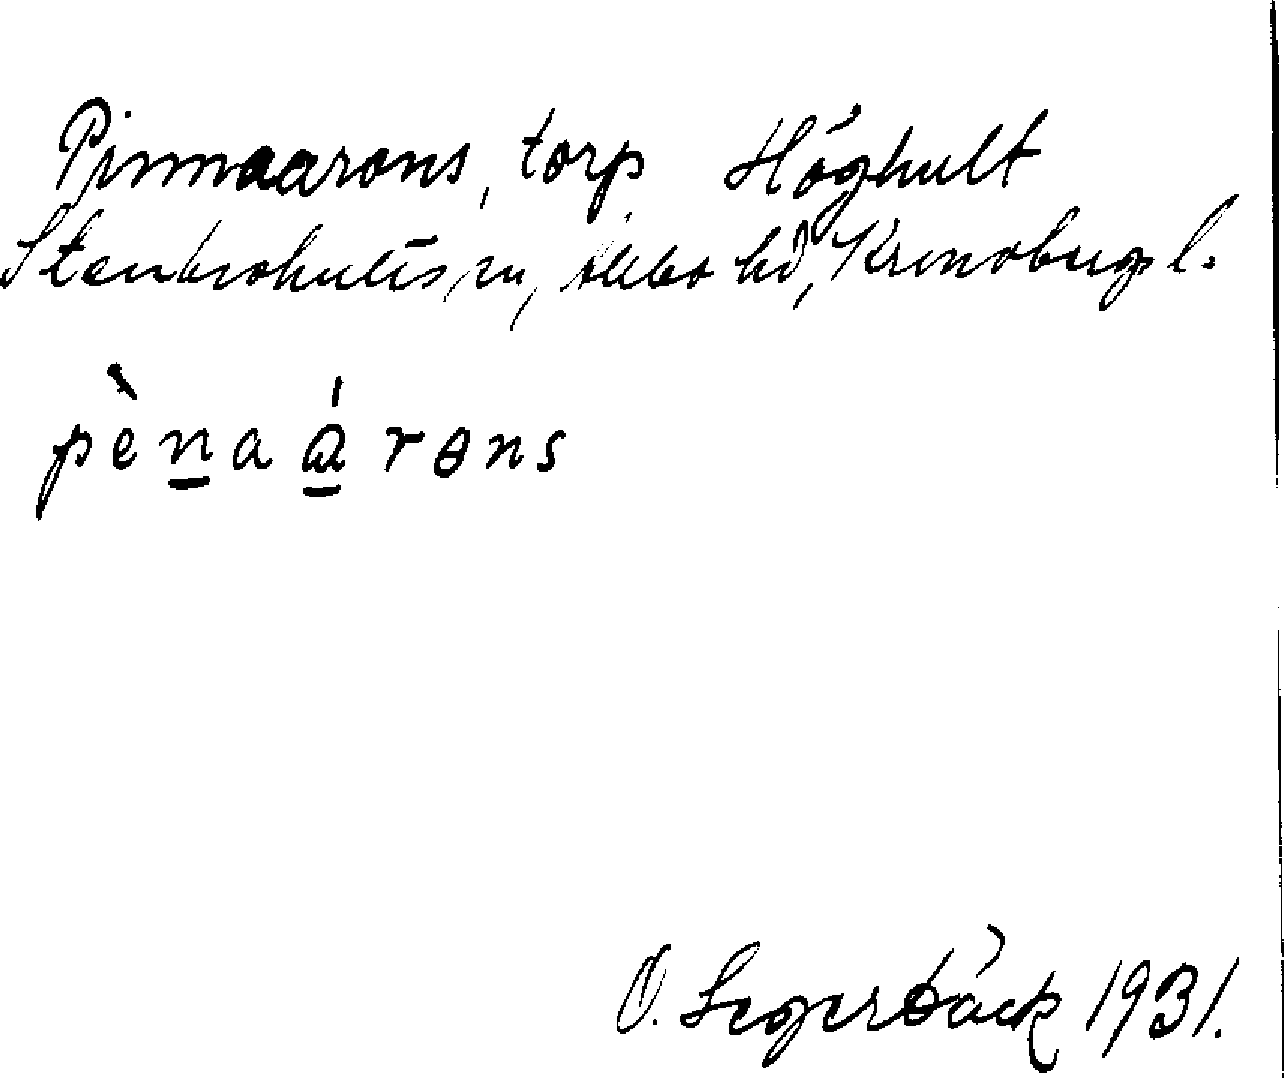 Pinnaarons, torp Höghult
Stenbrohults sn, Allbo hd, Kronobergs l.
pènaárɵns
O. Segerbäck 1931.